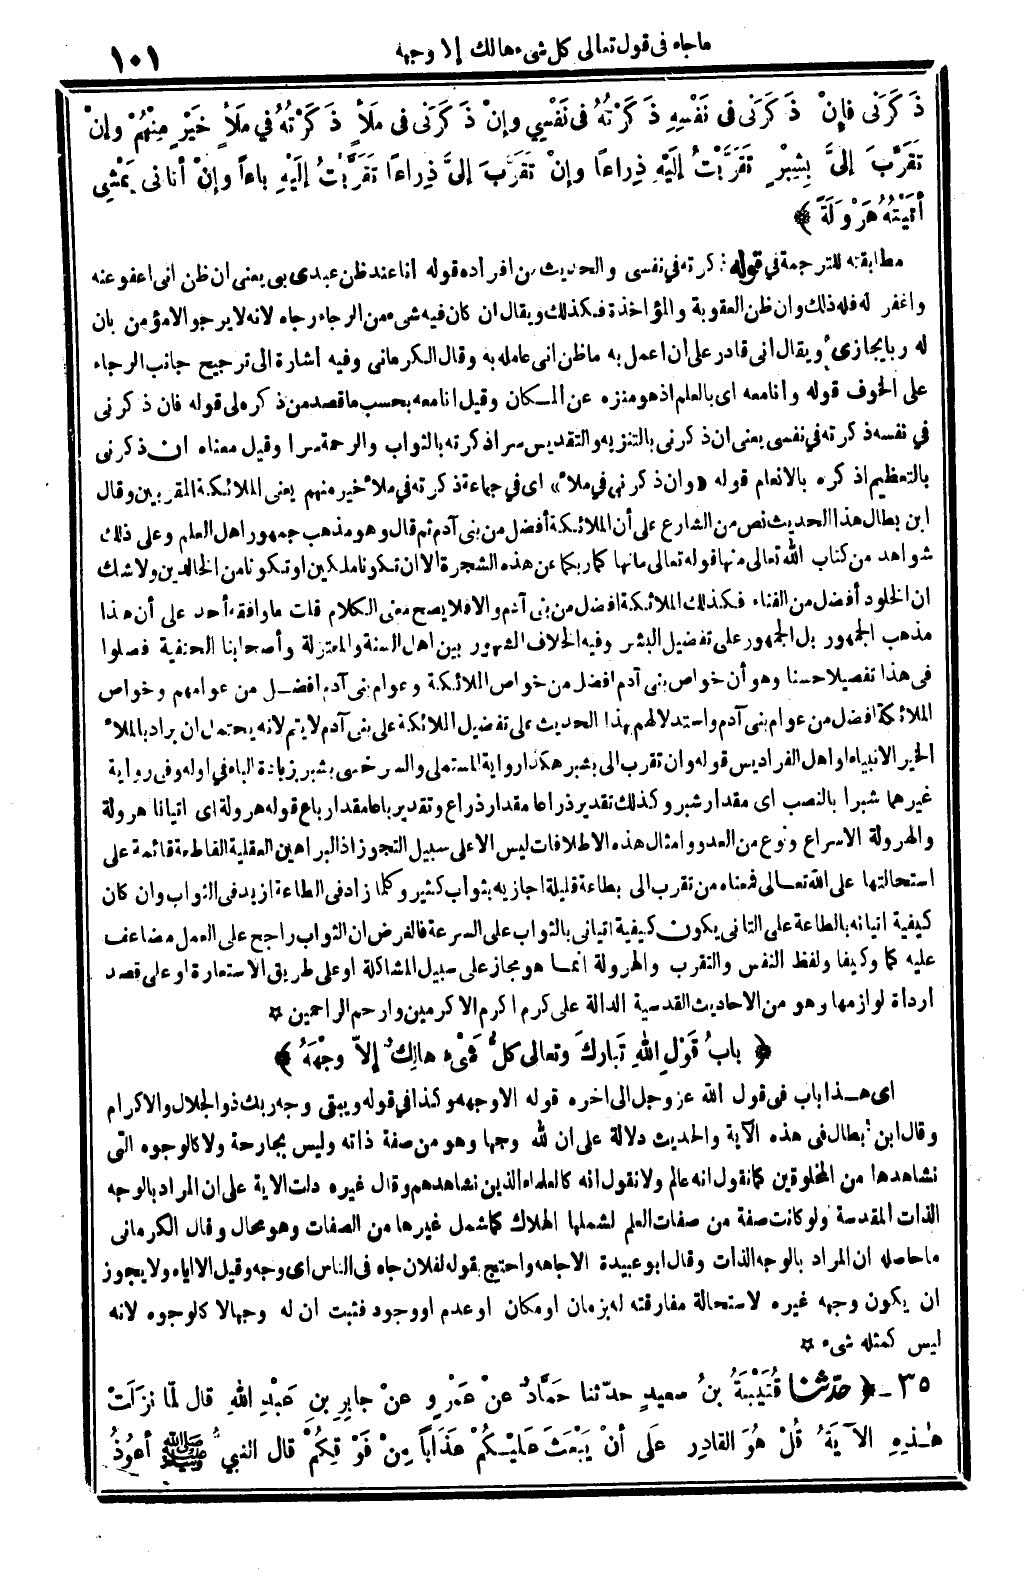 ما جاء فى قول تعالى كل شىء هالك إلا وجهه ١٠١
ذَكَرَنى فإِنْ ذَكَرَنى فى نَفْسِهِ ذَكَرْتُهُ فى نَفْسِي وإنْ ذَكَرَنى فى ملَأٍ ذَكَرْتُهُ في مَلَأٍ خَيْرٍ مِنْهُمْ وإنْ
تَقَرَّبَ إلىَّ بِشِبْرٍ تَقَرَّبْتُ إلَيْهِ ذِراعًا وإنْ تَقَرَّبَ إلىَّ ذِراعًا تَقَرَّبْتُ إلَيْهِ باعاً وإنْ أتانى يَمْشِي
أتَيْتُهُ هَرْوَلَةً ﴾
مطابقته للترجمة في قوله ذكرته في نفسى والحديث من افراده قوله انا عند ظن عبدى بى يعنى ان ظن انى اعفو عنه
واغفر له فله ذلك وان ظن العقوبة والمؤاخذة فكذلك ويقال ان كان فيه شىء من الرجاء رجاه لانه لا يرجو الا مؤمن بان
له ربا يجازى ويقال انى قادر على أن اعمل به ما ظن انى عامله به وقال الكرماني وفيه أشارة الى ترجيح جانب الرجاء
على الخوف قوله وأنا معه اى بالعلم اذ هو منزه عن المكان وقيل انا معه بحسب ما قصد من ذكره لى قوله فان ذكرنى
في نفسه ذكرته في نفسى يعنى ان ذكرنى بالتنزيه والتقديس سرا ذكرته بالثواب والرحمة سرا وقيل معناه ان ذكرنى
بالتعظيم اذكره بالانعام قوله «وان ذكرنى في ملأ» اى في جماعة ذكرته في ملأ خير منهم يعنى الملائكة المقربين وقال
ابن بطال هذا الحديث نص من الشارع على أن الملائكة أفضل من بنى آدم ثم قال وهو مذهب جمهور اهل العلم وعلى ذلك
شواهد من كتاب الله تعالى منها قوله تعالى مانها كما ربكما عن هذه الشجرة الا ان تكونا ملكين او تكونا من الخالدين ولا شك
ان الخلود أفضل من الفناء فكذلك الملائكة افضل من بنى آدم والا فلا يصح معنى الكلام قلت ما وافقه أحد على أن هذا
مذهب الجمهور بل الجمهور على تفضيل البشر وفيه الخلاف المشهور بين اهل السنة والمعتزلة وأصحابنا الحنفية فصلوا
فى هذا تفصيلا حسنا وهو أن خواص بنى آدم افضل من خواص الملائكة وعوام بنى آدم افضل من عوامهم وخواص
الملائكة افضل من عوام بنى آدم واستدلالهم بهذا الحديث على تفضيل الملائكة على بنى آدم لا يتم لانه يحتمل ان يراد بالملأ
الخير الانبياء او اهل الفراديس قوله وان تقرب الى بشبر هكذا رواية المستملى والسرخسى بشبر بزيادة الباء في اوله وفى رواية
غيرهما شبرا بالنصب اى مقدار شبر وكذلك تقدير ذراعا مقدار ذراع وتقدير باعا مقدار باع قوله هرولة اى اتيانا هرولة
والهرولة الاسراع ونوع من العدو وامثال هذه الاطلاقات ليس الا على سبيل التجوز اذ البراهين العقلية القاطعة قائمة على
استحالتها على الله تعالى فمعناه من تقرب الى بطاعة قليلة اجازيه بثواب كثير وكلما زاد فى الطاعة ازيد فى الثواب وان كان
كيفية اتيانه بالطاعة على التانى يكون كيفية اتيانى بالثواب على السرعة فالغرض ان الثواب راجح على العمل مضاعف
عليه كما وكيفا ولفظ النفس والتقرب والهرولة انما هو مجاز على سبيل المشاكلة او على طريق الاستعارة او على قصد
ارداة لوازمها وهو من الاحاديث القدسية الدالة على كرم اكرم الاكرمين وارحم الراحمين
﴿ بابُ قَوْلِ اللهِ تَبارَكَ وتعالى كلُّ شَىْءٍ هالِكٌ إلاّ وجْهَهُ ﴾
اى هذا باب فى قول الله عز وجل الى اخره قوله الا وجهه وكذا في قوله ويبقى وجه ربك ذو الجلال والاكرام
وقال ابن بطال فى هذه الآية والحديث دلالة على ان لله وجها وهو من صفة ذاته وليس بجارحة ولا كالوجوه التى
نشاهدها من المخلوقين كما نقول انه عالم ولا نقول انه كالعلماء الذين نشاهدهم وقال غيره دلت الاية على ان المراد بالوجه
الذات المقدسة ولو كانت صفة من صفات العلم لشملها الهلاك كما شمل غيرها من الصفات وهو محال وقال الكرمانى
ما حاصله ان المراد بالوجه الذات وقال ابو عبيدة الا جاهه واحتج بقوله لفلان جاه فى الناس اى وجه وقيل الا اياه ولا يجوز
ان يكون وجهه غيره لاستحالة مفارقته له بزمان او مكان او عدم او وجود فثبت ان له وجها لا كالوجوه لانه
ليس كمثله شىء
٣٥ - ﴿ حدّثنا قُتَيْبَةُ بنُ سعيدٍ حدّثنا حَمَّادٌ عنْ عَمْرٍو عنْ جابِرِ بنِ عَبْدِ اللهِ قال لمّا نزَلَتْ
هٰذِهِ الآيَةُ قُلْ هُوَ القادِر عَلَى أنْ يَبْعَثَ عَلَيْكُمْ عَذَاباً مِنْ فَوْقِكُمْ قال النبيُّ ﷺ أعُوذُ